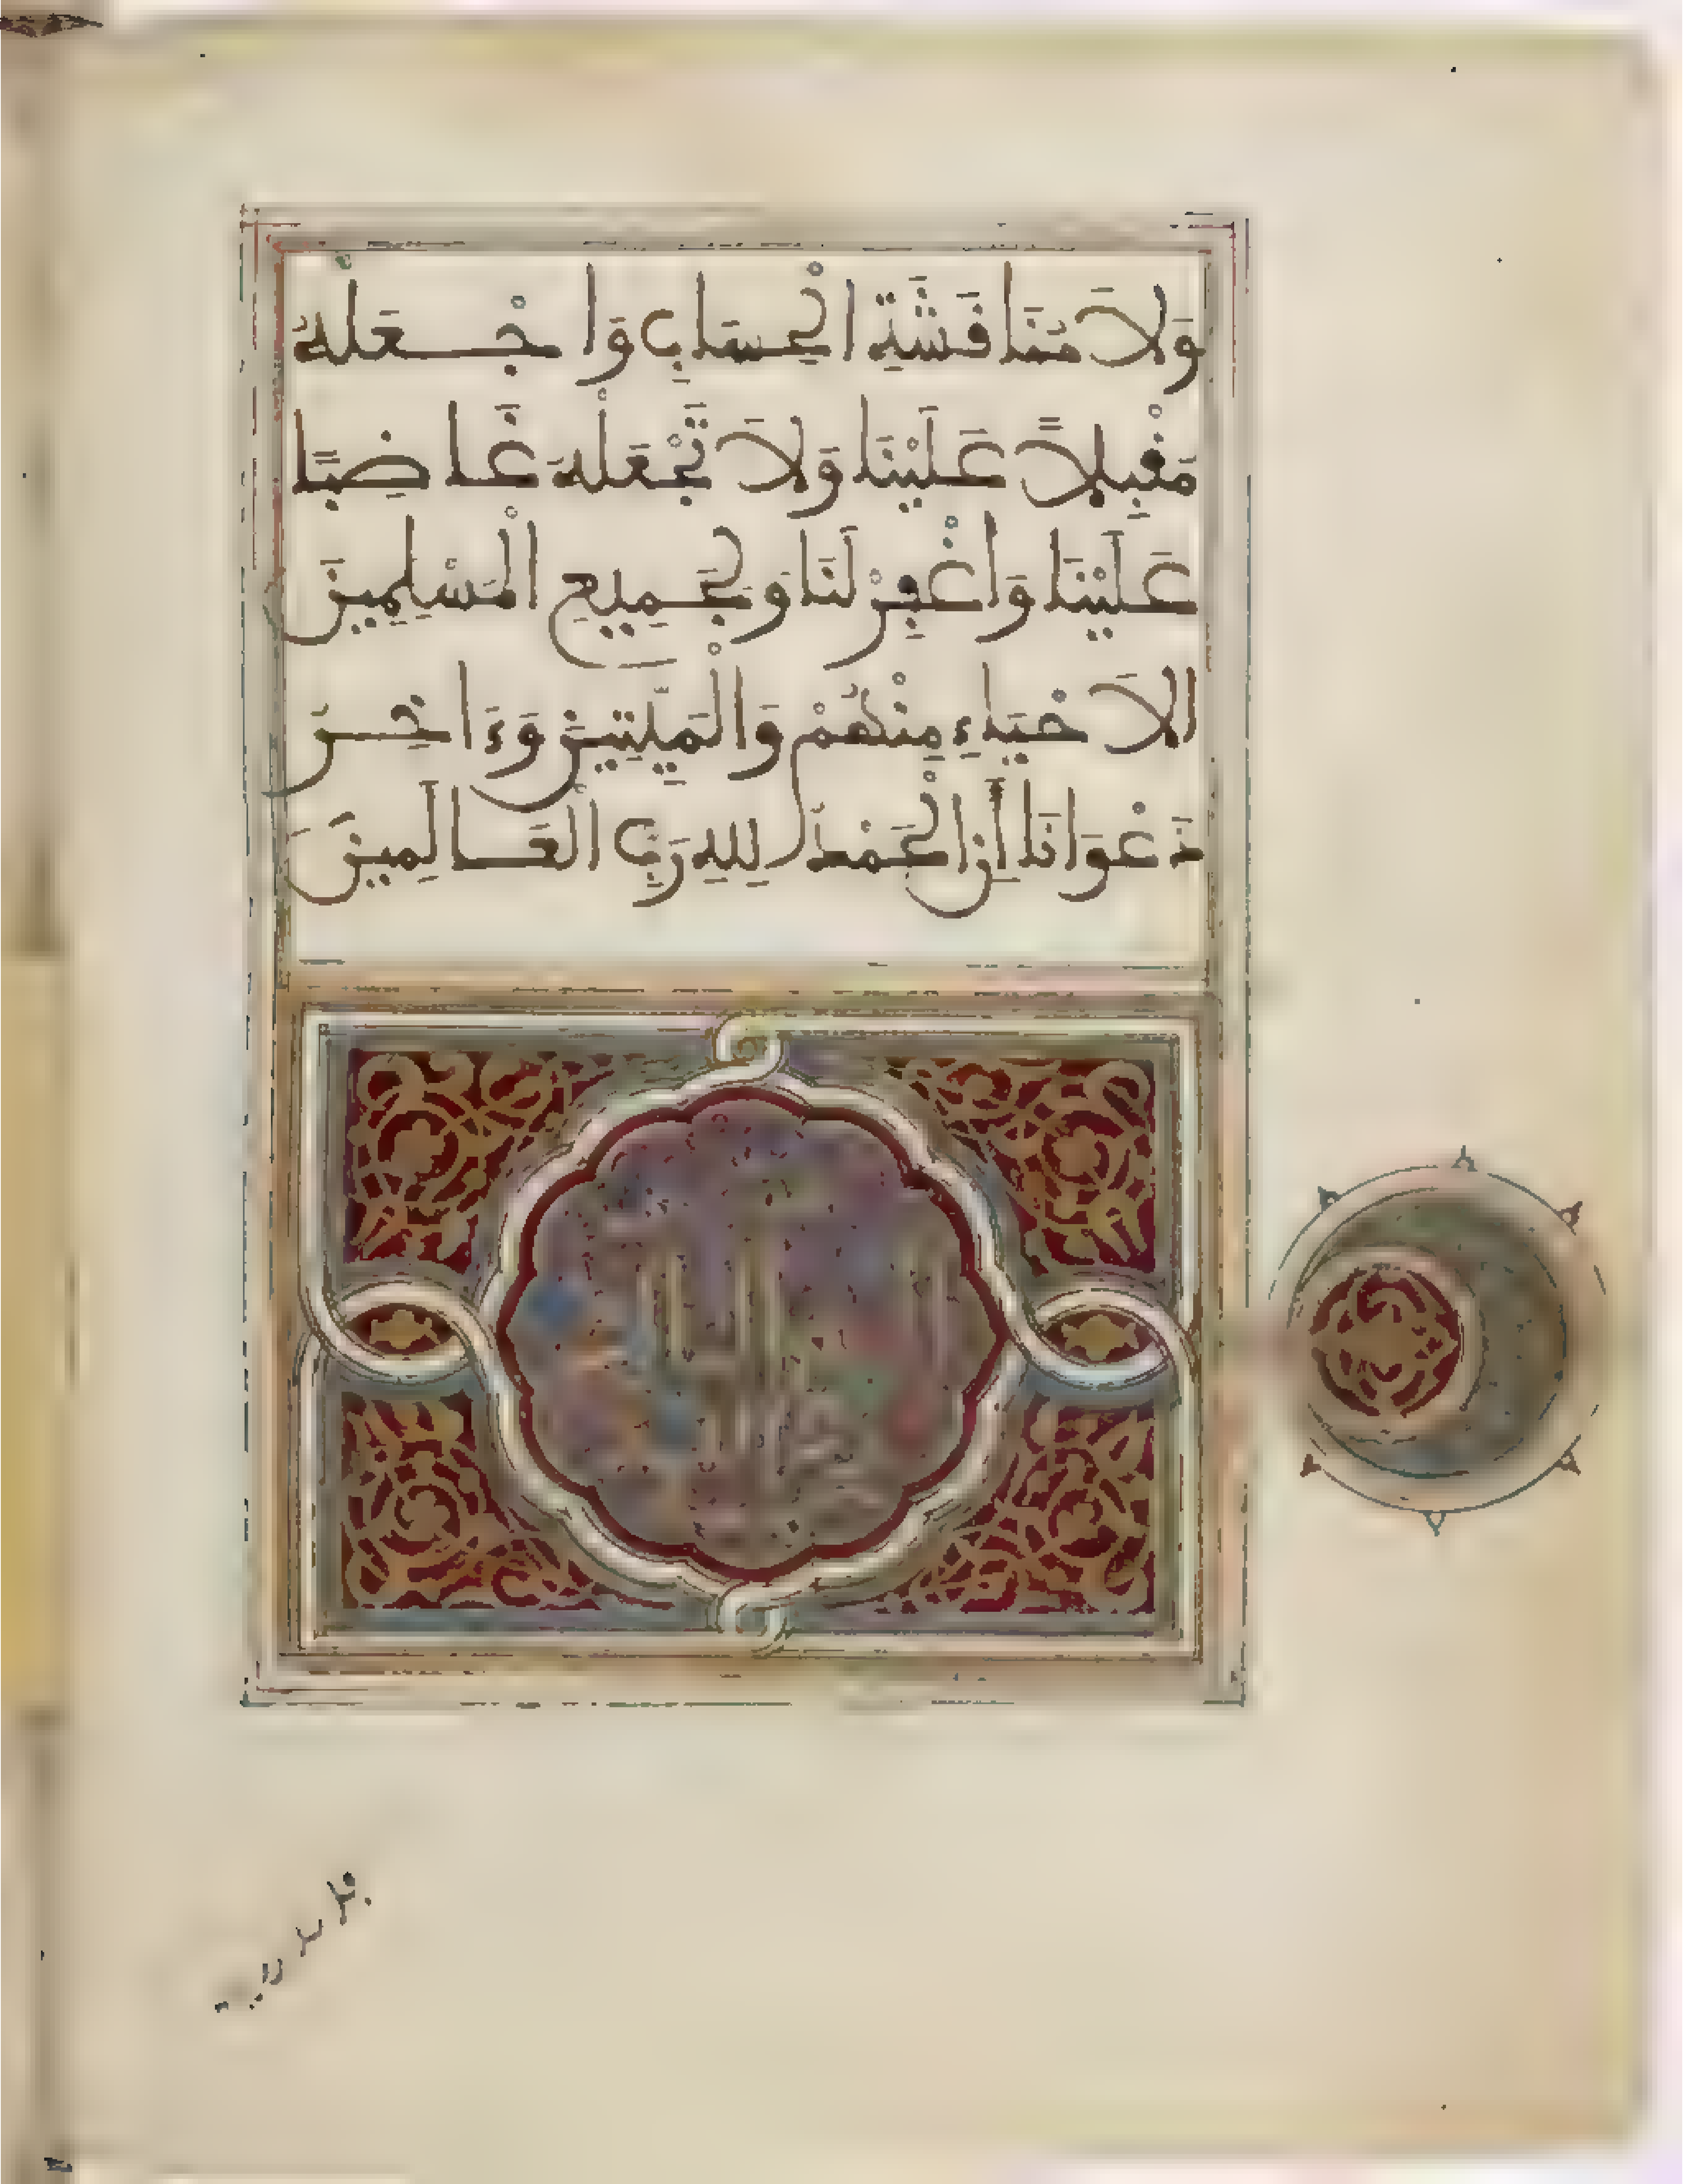 وَلَا مُنَافَشَةِ الْحِسَابِ وَاجْعَلْهُ
مُقْبِلًا عَلَيْنَا وَلَا تَجْعَلْهُ غَاضِبًا
عَلَيْنَا وَاغْفِرْ لَنَا وَلِجَمِيعِ الْمُسْلِمِينَ
الَاحْيَاءِ مِنْهُمْ وَالْمَيِّتِينَ وَءَاخِرُ
دَعْوَانَا أَنِ الْحَمْدُ لِلهِ رَبِّ الْعَالَمِينَ